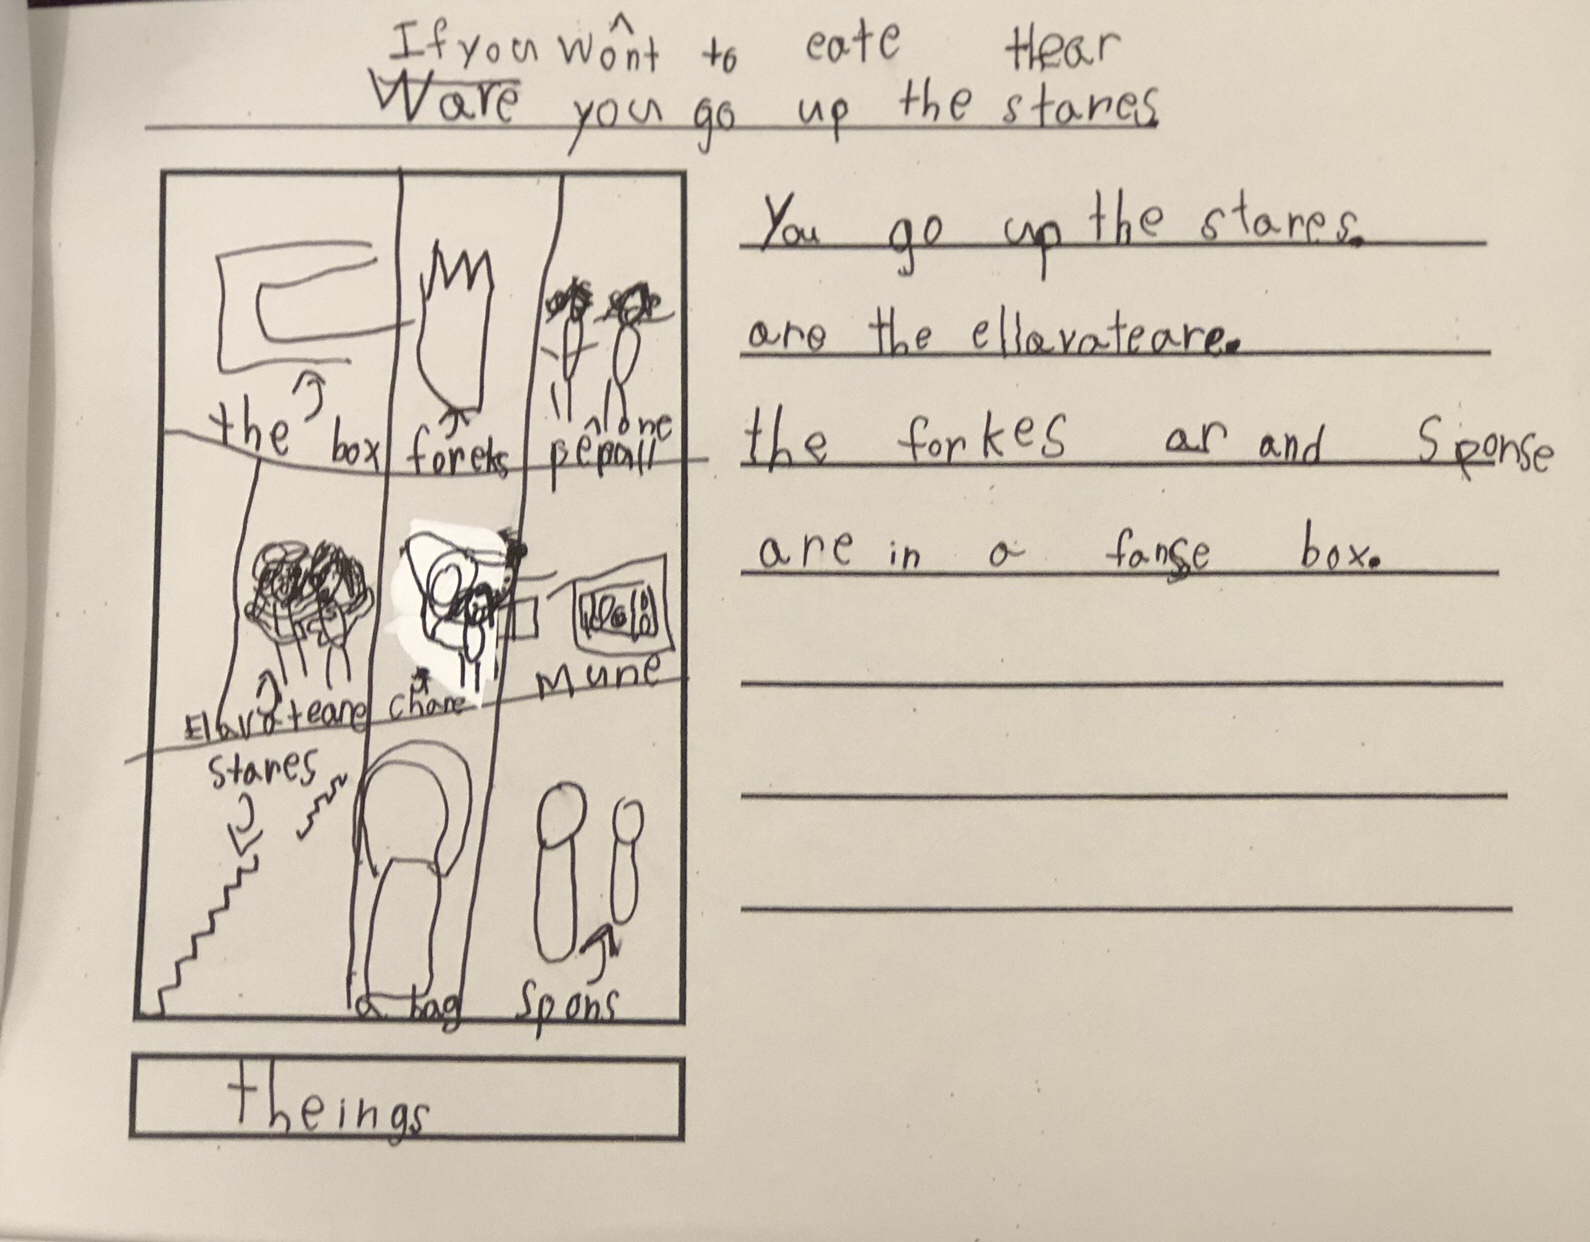 If you wont to eate Hear
Ware you go up the stares.
You go up the stares.
are the ellavateare.
the forkes ar and Sponse
are in a fanse box.
the box
foreks
lone
pepall
Elavateare
chare
Mune
stares
a bag
Spons
theings